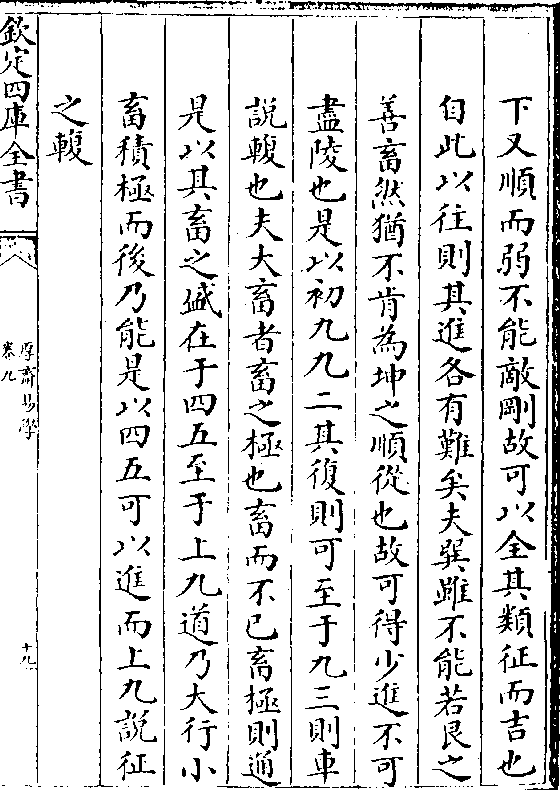 下又順而弱不能敵剛故可以全其類征而吉也
自此以往則其進各有難矣夫巽雖不能若艮之
善畜然猶不肯為坤之順從也故可得少進不可
盡陵也是以初九九二其復則可至于九三則車
說輹也夫大畜者畜之極也畜而不已畜極則通
是以其畜之盛在于四五至于上九道乃大行小
畜積極而後乃能是以四五可以進而上九說征
之輹
欽定四庫全書
厚齋易學
卷九
十九